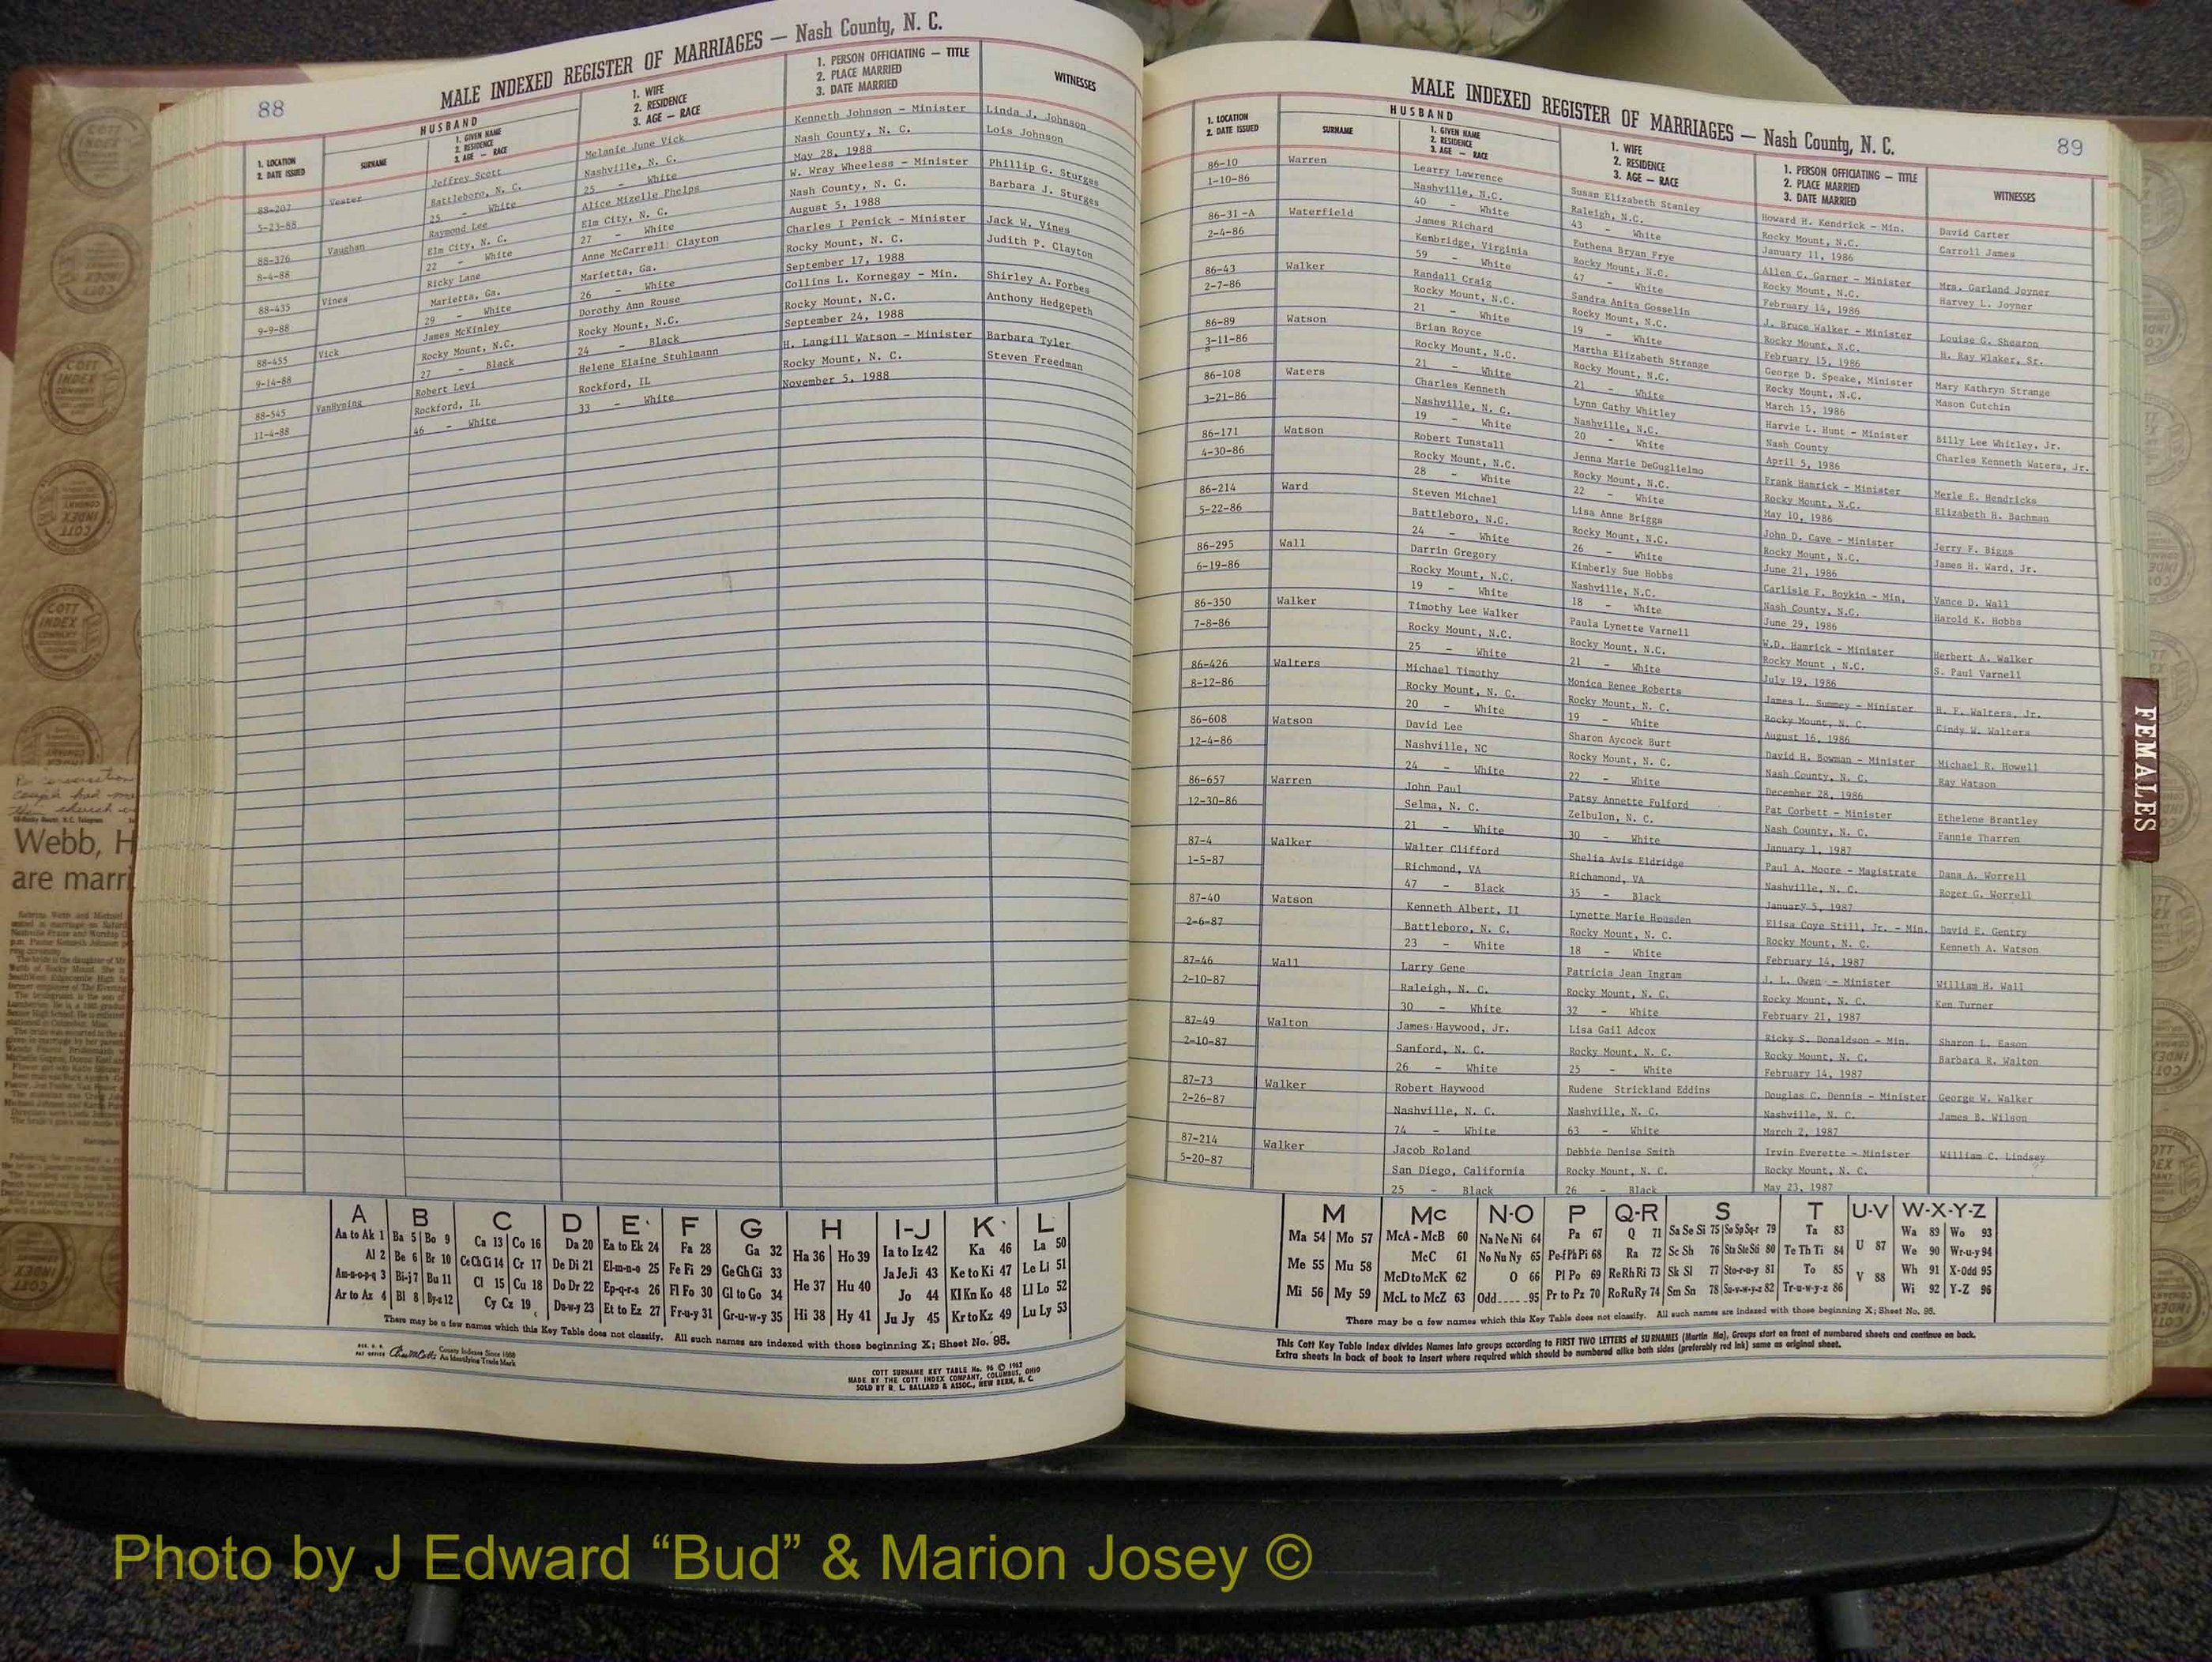 88
MALE INDEXED REGISTER OF MARRIAGES — Nash County, N. C.
1. LOCATION
2. DATE ISSUED
SURNAME
HUSBAND
1. GIVEN NAME
2. RESIDENCE
3. AGE — RACE
1. WIFE
2. RESIDENCE
3. AGE — RACE
1. PERSON OFFICIATING — TITLE
2. PLACE MARRIED
3. DATE MARRIED
WITNESSES
88-207 Vester Jeffrey Scott Melanie June Vick Kenneth Johnson - Minister Linda J. Johnson
5-23-88 Battleboro, N. C. Nashville, N. C. Nash County, N. C. Lois Johnson
25 - White 25 - White May 28, 1988
88-376 Vaughan Raymond Lee Alice Mizelle Phelps W. Wray Wheeless - Minister Phillip G. Sturges
8-4-88 Elm City, N. C. Elm City, N. C. Nash County, N. C. Barbara J. Sturges
22 - White 27 - White August 5, 1988
88-435 Vines Ricky Lane Anne McCarrell Clayton Charles I Penick - Minister Jack W. Vines
9-9-88 Marietta, Ga. Marietta, Ga. Rocky Mount, N. C. Judith P. Clayton
29 - White 26 - White September 17, 1988
88-455 Vick James McKinley Dorothy Ann Rouse Collins L. Kornegay - Min. Shirley A. Forbes
9-14-88 Rocky Mount, N.C. Rocky Mount, N.C. Rocky Mount, N.C. Anthony Hedgepeth
27 - Black 24 - Black September 24, 1988
88-545 VanHyning Robert Levi Helene Elaine Stuhlmann H. Langill Watson - Minister Barbara Tyler
11-4-88 Rockford, IL Rockford, IL Rocky Mount, N. C. Steven Freedman
46 - White 33 - White November 5, 1988
A B C D E F G H I-J K L
Aa to Ak 1 Ba 5 Bo 9 Ca 13 Co 16 Da 20 Ea to Ek 24 Fa 28 Ga 32 Ha 36 Ho 39 Ia to Iz 42 Ka 46 La 50
Al 2 Be 6 Br 10 Ce Ch Ci 14 Cr 17 De Di 21 El-m-n-o 25 Fe Fi 29 Ge Gh Gi 33 Ja Je Ji 43 Ke to Ki 47 Le Li 51
Am-n-o-p-q 3 Bi-j 7 Bu 11 Cl 15 Cu 18 Do Dr 22 Ep-q-r-s 26 Fl Fo 30 Gl to Go 34 He 37 Hu 40 Jo 44 Kl Kn Ko 48 Ll Lo 52
Ar to Az 4 Bl 8 By-z 12 Cy Cz 19 Du-w-y 23 Et to Ez 27 Fr-u-y 31 Gr-u-w-y 35 Hi 38 Hy 41 Ju Jy 45 Kr to Kz 49 Lu Ly 53
There may be a few names which this Key Table does not classify. All such names are indexed with those beginning X; Sheet No. 95.
County Indexes Since 1888
An Identifying Trade Mark
COTT SURNAME KEY TABLE No. 96 © 1962
MADE BY THE COTT INDEX COMPANY, COLUMBUS, OHIO
SOLD BY R. L. BALLARD & ASSOC., NEW BERN, N. C.
MALE INDEXED REGISTER OF MARRIAGES — Nash County, N. C.
89
1. LOCATION
2. DATE ISSUED
SURNAME
HUSBAND
1. GIVEN NAME
2. RESIDENCE
3. AGE — RACE
1. WIFE
2. RESIDENCE
3. AGE — RACE
1. PERSON OFFICIATING — TITLE
2. PLACE MARRIED
3. DATE MARRIED
WITNESSES
86-10 Warren Learry Lawrence Susan Elizabeth Stanley Howard H. Kendrick - Min. David Carter
1-10-86 Nashville, N.C. Raleigh, N.C. Rocky Mount, N.C. Carroll James
40 - White 43 - White January 11, 1986
86-31-A Waterfield James Richard Euthena Bryan Frye Allen C. Garner - Minister Mrs. Garland Joyner
2-4-86 Kenbridge, Virginia Rocky Mount, N.C. Rocky Mount, N.C. Harvey L. Joyner
59 - White 47 - White February 14, 1986
86-43 Walker Randall Craig Sandra Anita Gosselin J. Bruce Walker - Minister Louise G. Shearon
2-7-86 Rocky Mount, N.C. Rocky Mount, N.C. Rocky Mount, N.C. H. Ray Wlaker, Sr.
21 - White 19 - White February 15, 1986
86-89 Watson Brian Royce Martha Elizabeth Strange George D. Speake, Minister Mary Kathryn Strange
3-11-86 Rocky Mount, N.C. Rocky Mount, N.C. Rocky Mount, N.C. Mason Cutchin
21 - White 21 - White March 15, 1986
86-108 Waters Charles Kenneth Lynn Cathy Whitley Harvie L. Hunt - Minister Billy Lee Whitley, Jr.
3-21-86 Nashville, N. C. Nashville, N.C. Nash County Charles Kenneth Waters, Jr.
19 - White 20 - White April 5, 1986
86-171 Watson Robert Tunstall Jenna Marie DeGuglielmo Frank Hamrick - Minister Merle E. Hendricks
4-30-86 Rocky Mount, N.C. Rocky Mount, N.C. Rocky Mount, N.C. Elizabeth H. Bachman
28 - White 22 - White May 10, 1986
86-214 Ward Steven Michael Lisa Anne Briggs John D. Cave - Minister Jerry F. Biggs
5-22-86 Battleboro, N.C. Rocky Mount, N.C. Rocky Mount, N.C. James H. Ward, Jr.
24 - White 26 - White June 21, 1986
86-295 Wall Darrin Gregory Kimberly Sue Hobbs Carlisle F. Boykin - Min. Vance D. Wall
6-19-86 Rocky Mount, N.C. Nashville, N.C. Nash County, N.C. Harold K. Hobbs
19 - White 18 - White June 29, 1986
86-350 Walker Timothy Lee Walker Paula Lynette Varnell W.D. Hamrick - Minister Herbert A. Walker
7-8-86 Rocky Mount, N.C. Rocky Mount, N.C. Rocky Mount , N.C. S. Paul Varnell
25 - White 21 - White July 19, 1986
86-426 Walters Michael Timothy Monica Renee Roberts James L. Summey - Minister H. F. Walters, Jr.
8-12-86 Rocky Mount, N. C. Rocky Mount, N. C. Rocky Mount, N. C. Cindy W. Walters
20 - White 19 - White August 16, 1986
86-608 Watson David Lee Sharon Aycock Burt David H. Bowman - Minister Michael R. Howell
12-4-86 Nashville, NC Rocky Mount, N. C. Nash County, N. C. Ray Watson
24 - White 22 - White December 28, 1986
86-657 Warren John Paul Patsy Annette Fulford Pat Corbett - Minister Ethelene Brantley
12-30-86 Selma, N. C. Zelbulon, N. C. Nash County, N. C. Fannie Tharren
21 - White 30 - White January 1, 1987
87-4 Walker Walter Clifford Shelia Avis Eldridge Paul A. Moore - Magistrate Dana A. Worrell
1-5-87 Richmond, VA Richamond, VA Nashville, N. C. Roger G. Worrell
47 - Black 35 - Black January 5, 1987
87-40 Watson Kenneth Albert, II Lynette Marie Housden Elisa Coye Still, Jr. - Min. David E. Gentry
2-6-87 Battleboro, N. C. Rocky Mount, N. C. Rocky Mount, N. C. Kenneth A. Watson
23 - White 18 - White February 14, 1987
87-46 Wall Larry Gene Patricia Jean Ingram J. L. Owen - Minister William H. Wall
2-10-87 Raleigh, N. C. Rocky Mount, N. C. Rocky Mount, N. C. Ken Turner
30 - White 32 - White February 21, 1987
87-49 Walton James Haywood, Jr. Lisa Gail Adcox Ricky S. Donaldson - Min. Sharon L. Eason
2-10-87 Sanford, N. C. Rocky Mount, N. C. Rocky Mount, N. C. Barbara R. Walton
26 - White 25 - White February 14, 1987
87-73 Walker Robert Haywood Rudene Strickland Eddins Douglas C. Dennis - Minister George W. Walker
2-26-87 Nashville, N. C. Nashville, N. C. Nashville, N. C. James B. Wilson
74 - White 63 - White March 2, 1987
87-214 Walker Jacob Roland Debbie Denise Smith Irvin Everette - Minister William C. Lindsey
5-20-87 San Diego, California Rocky Mount, N. C. Rocky Mount, N. C.
25 - Black 26 - Black May 23, 1987
M Mc N-O P Q-R S T U-V W-X-Y-Z
Ma 54 Mo 57 McA - McB 60 Na Ne Ni 64 Pa 67 Q 71 Sa Se Si 75 So Sp Sq-r 79 Ta 83 U 87 Wa 89 Wo 93
Me 55 Mu 58 McC 61 No Nu Ny 65 Pe-f Ph Pi 68 Ra 72 Sc Sh 76 Sta Ste Sti 80 Te Th Ti 84 We 90 Wr-u-y 94
McD to McK 62 O 66 Pl Po 69 Re Rh Ri 73 Sk Sl 77 Sto-r-u-y 81 To 85 V 88 Wh 91 X-Odd 95
Mi 56 My 59 McL to McZ 63 Odd.....95 Pr to Pz 70 Ro Ru Ry 74 Sm Sn 78 Su-v-w-y-z 82 Tr-u-w-y-z 86 Wi 92 Y-Z 96
There may be a few names which this Key Table does not classify. All such names are indexed with those beginning X; Sheet No. 95.
This Cott Key Table Index divides Names into groups according to FIRST TWO LETTERS of SURNAMES (Martin Ma), Groups start on front of numbered sheets and continue on back.
Extra sheets in back of book to insert where required which should be numbered alike both sides (preferably red ink) same as original sheet.
FEMALES
Webb, H
are marri
COTT INDEX COMPANY
Photo by J Edward “Bud” & Marion Josey ©